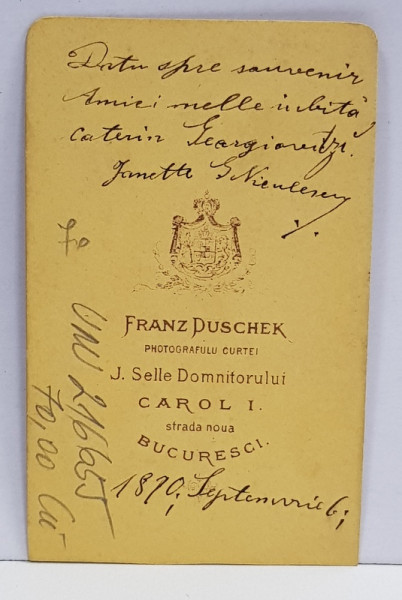 Datu spre souvenir
Amici melle iubită
Caterin Georgiovitzi.
Janette G Niculescu
FRANZ DUSCHEK
PHOTOGRAFULU CURTEI
J. Selle Domnitorului
CAROL I.
strada noua
BUCURESCI.
1870, Septemvrie 6;
UNU 216655
70,00 Lei